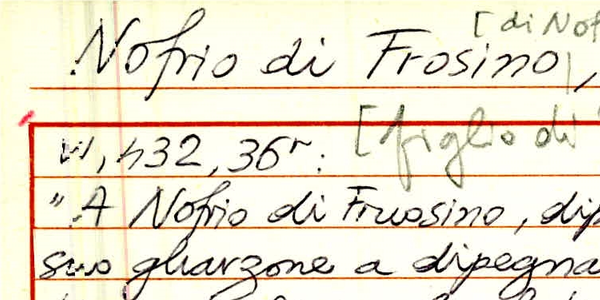 [di Nof
Nofrio di Frosino,
[figlio di
W, 432, 36r:
"A Nofrio di Fruosino, dip
suo gharzone a dipegna